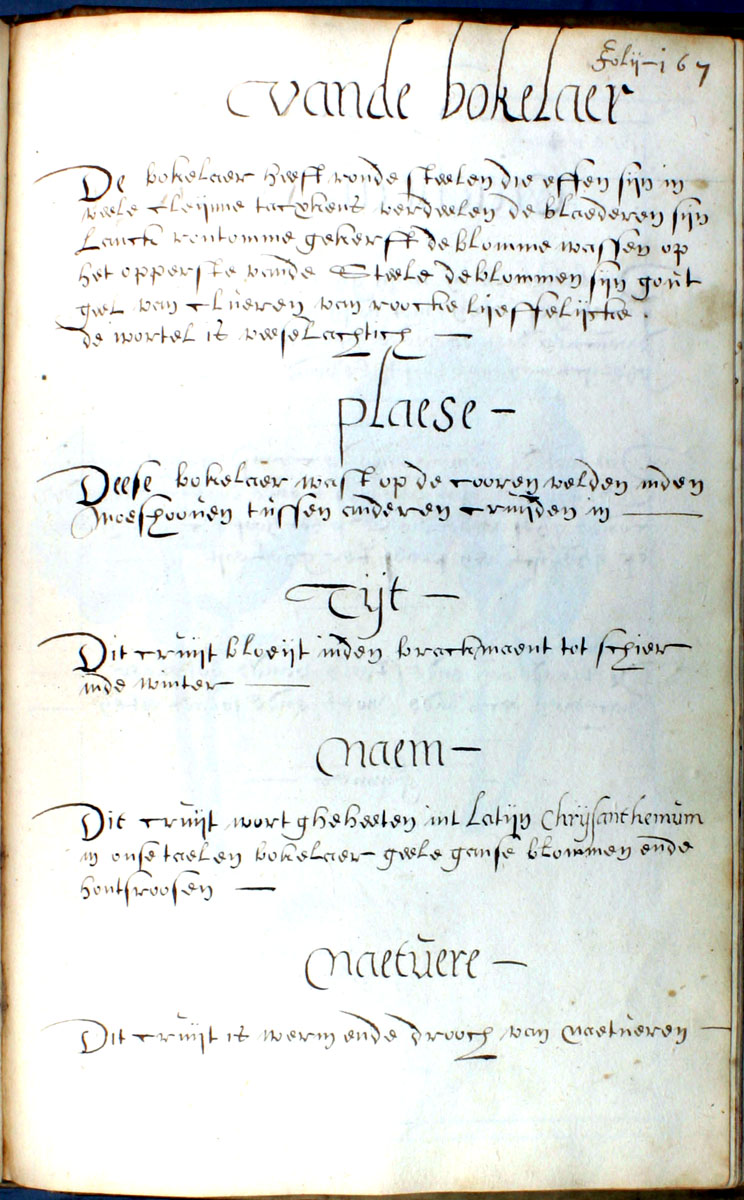 Folij 167
vande bokelaer
De bokelaer heeft ronde steelen die effen sijn in
veele cleijnne tacxkens verdeelen de blaederen sijn
Lanck rontomme gekerft de blomme wassen op
het opperste vande Steele de blommen sijn gout
geel van clueren van roocke lijeffelijcke.
de wortel is veeselachtich —
plaese —
Deese bokelaer wast op de cooren velden inden
moeshooven tussen anderen cruijden in —
Tijt —
Dit cruijt bloeijt inden brackmaent tot schier
inde winter —
Naem —
Dit cruijt wort gheheeten int Latijn Chrysanthemum
in onse taelen bokelaer geele ganse blommen ende
hontsroosen —
Naetuere —
Dit cruijt is werm ende drooch van Naetueren —